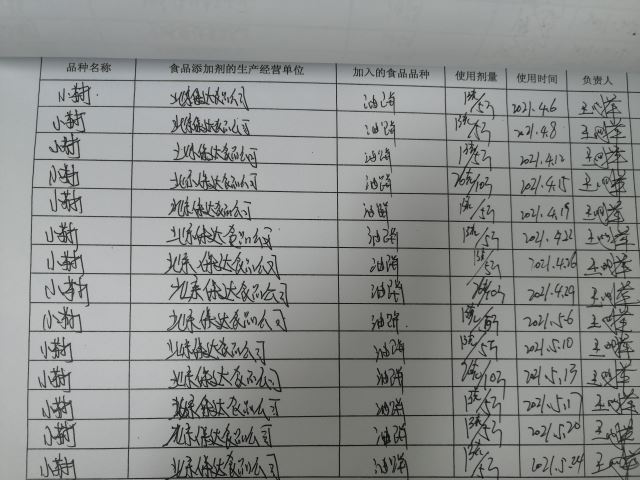 品种名称 食品添加剂的生产经营单位 加入的食品品种 使用剂量 使用时间 负责人
小苏打 北京保达食品公司 油饼 13克/5斤 2021.4.6
小苏打 北京保达食品公司 油饼 13克/5斤 2021.4.8
小苏打 北京保达食品公司 油饼 13克/5斤 2021.4.12
小苏打 北京保达食品公司 油饼 26克/10斤 2021.4.15
小苏打 北京保达食品公司 油饼 13克/5斤 2021.4.19
小苏打 北京保达食品公司 油饼 13克/5斤 2021.4.22
小苏打 北京保达食品公司 油饼 13克/5斤 2021.4.26
小苏打 北京保达食品公司 油饼 26克/10斤 2021.4.29
小苏打 北京保达食品公司 油饼 13克/5斤 2021.5.6
小苏打 北京保达食品公司 油饼 13克/5斤 2021.5.10
小苏打 北京保达食品公司 油饼 26克/10斤 2021.5.13
小苏打 北京保达食品公司 油饼 13克/5斤 2021.5.17
小苏打 北京保达食品公司 油饼 13克/5斤 2021.5.20
小苏打 北京保达食品公司 油饼 13克/5斤 2021.5.24